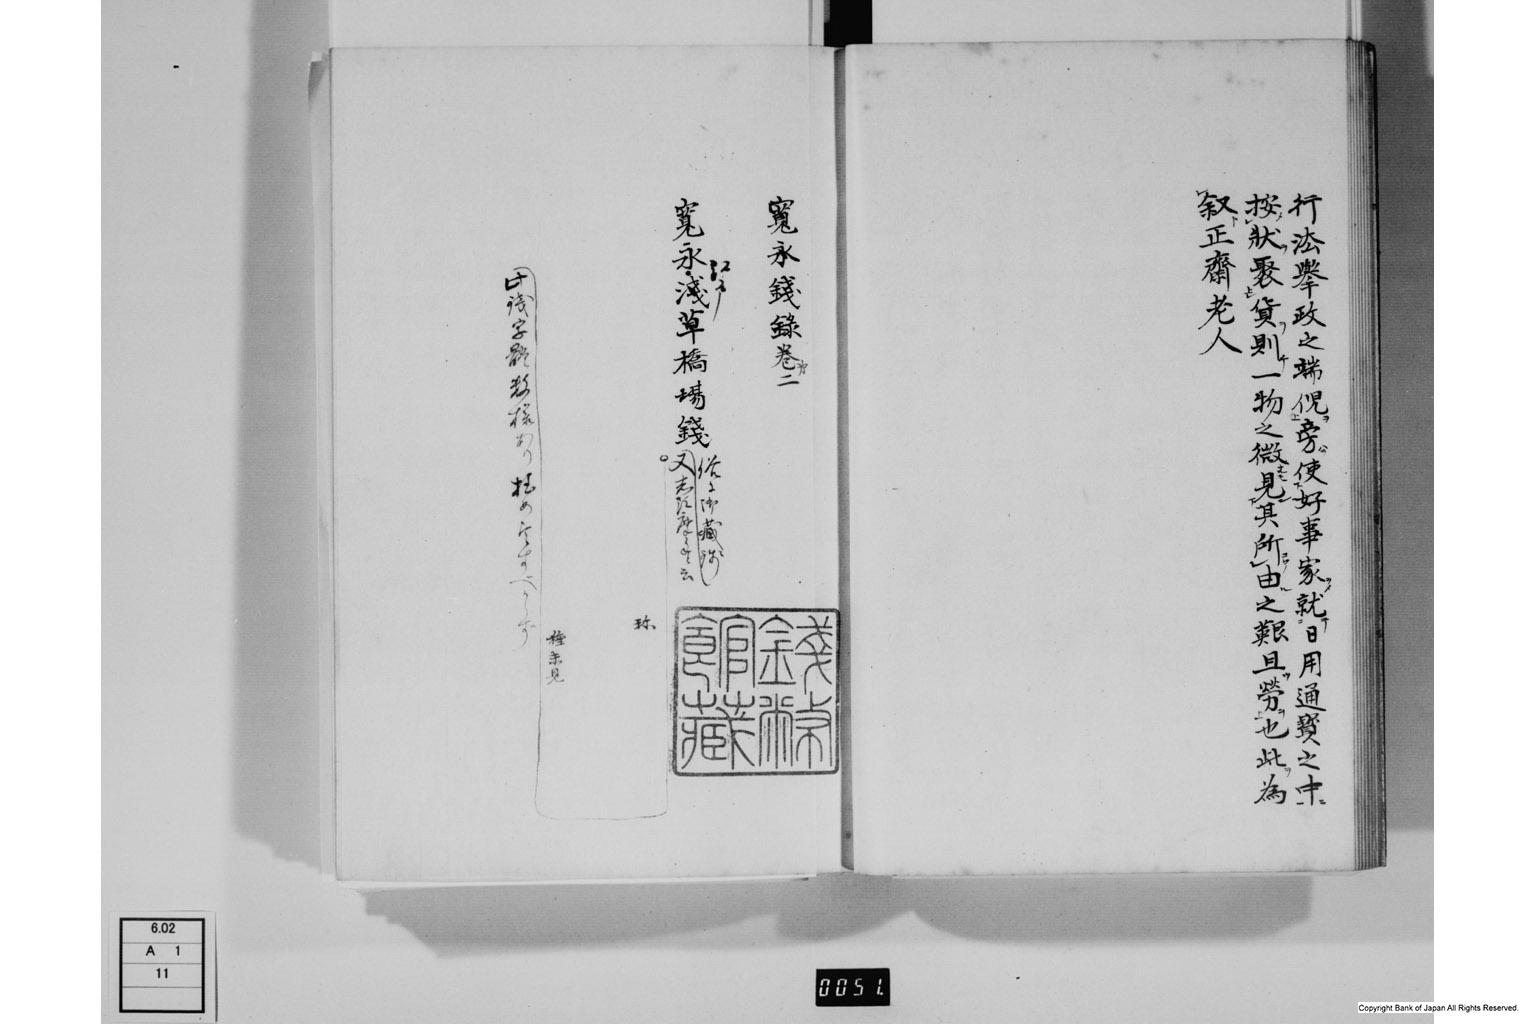 行法擧政之端倪旁使好事家就日用通寳之中
按狀聚貨則一物之微見其所由之艱且勞也此為
叙正齋老人
寛永錢錄巻二
寛永淺草橋塲錢
江戸
俗ニ御藏錢
又志道座
字
珎
種未見
錢幣館藏
6.02
A 1
11
0051.
Copyright Bank of Japan All Rights Reserved.